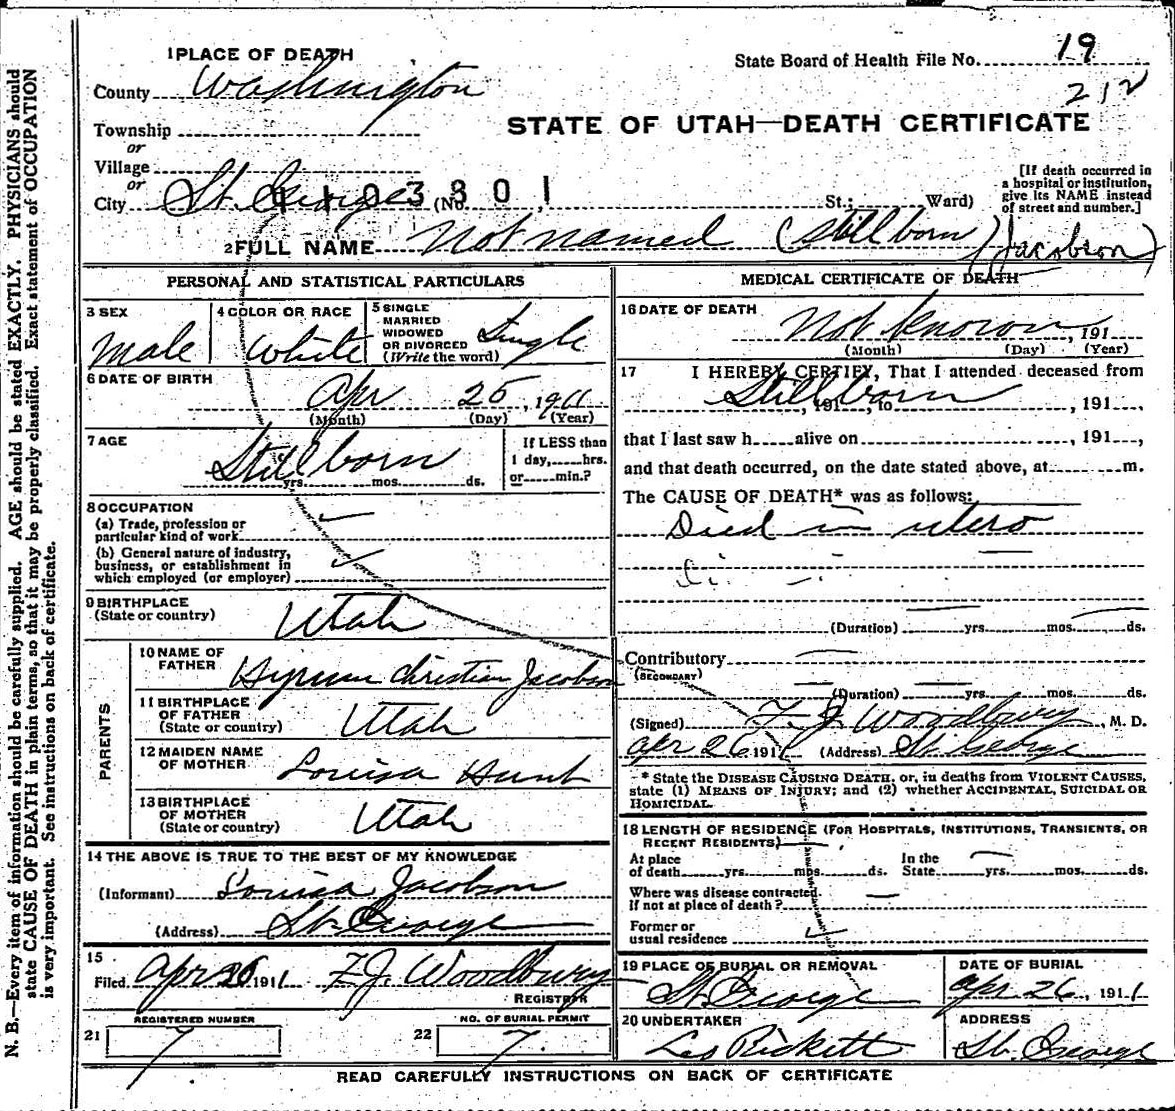 1 PLACE OF DEATH
State Board of Health File No. 19
212
County Washington
STATE OF UTAH—DEATH CERTIFICATE
Township
or
Village
or
City St. George (No. St.; Ward)
1103301
[If death occurred in
a hospital or institution,
give its NAME instead
of street and number.]
2 FULL NAME Not named (Stillborn) (Jacobson)
PERSONAL AND STATISTICAL PARTICULARS
3 SEX
Male
4 COLOR OR RACE
White
5 SINGLE
MARRIED
WIDOWED
OR DIVORCED
(Write the word)
Single
6 DATE OF BIRTH
Apr 25, 1911
(Month) (Day) (Year)
7 AGE
Stillborn
yrs. mos. ds.
If LESS than
1 day, hrs.
or min.?
8 OCCUPATION
(a) Trade, profession or
particular kind of work
(b) General nature of industry,
business, or establishment in
which employed (or employer)
9 BIRTHPLACE
(State or country)
Utah
PARENTS
10 NAME OF
FATHER
Hyrum Christian Jacobson
11 BIRTHPLACE
OF FATHER
(State or country)
Utah
12 MAIDEN NAME
OF MOTHER
Louisa Hunt
13 BIRTHPLACE
OF MOTHER
(State or country)
Utah
14 THE ABOVE IS TRUE TO THE BEST OF MY KNOWLEDGE
(Informant) Louisa Jacobson
(Address) St. George
15
Filed Apr 26 1911 F.J. Woodbury
REGISTRAR
REGISTERED NUMBER
21 7
NO. OF BURIAL PERMIT
22 7
MEDICAL CERTIFICATE OF DEATH
16 DATE OF DEATH
Not known, 191
(Month) (Day) (Year)
17 I HEREBY CERTIFY, That I attended deceased from
Stillborn
, 191 , to , 191 ,
that I last saw h alive on , 191 ,
and that death occurred, on the date stated above, at m.
The CAUSE OF DEATH* was as follows:
Died in utero
(Duration) yrs. mos. ds.
Contributory
(SECONDARY)
(Duration) yrs. mos. ds.
(Signed) F.J. Woodbury, M. D.
Apr 26 1911 (Address) St. George
* State the DISEASE CAUSING DEATH, or, in deaths from VIOLENT CAUSES,
state (1) MEANS OF INJURY; and (2) whether ACCIDENTAL, SUICIDAL OR
HOMICIDAL.
18 LENGTH OF RESIDENCE (FOR HOSPITALS, INSTITUTIONS, TRANSIENTS, OR
RECENT RESIDENTS)
At place
of death yrs. mos. ds.
In the
State yrs. mos. ds.
Where was disease contracted
If not at place of death?
Former or
usual residence
19 PLACE OF BURIAL OR REMOVAL
St. George
DATE OF BURIAL
Apr 26, 1911
20 UNDERTAKER
Leo Rickett
ADDRESS
St. George
READ CAREFULLY INSTRUCTIONS ON BACK OF CERTIFICATE
N. B.—Every item of information should be carefully supplied. AGE should be stated EXACTLY. PHYSICIANS should
state CAUSE OF DEATH in plain terms, so that it may be properly classified. Exact statement of OCCUPATION
is very important. See instructions on back of certificate.